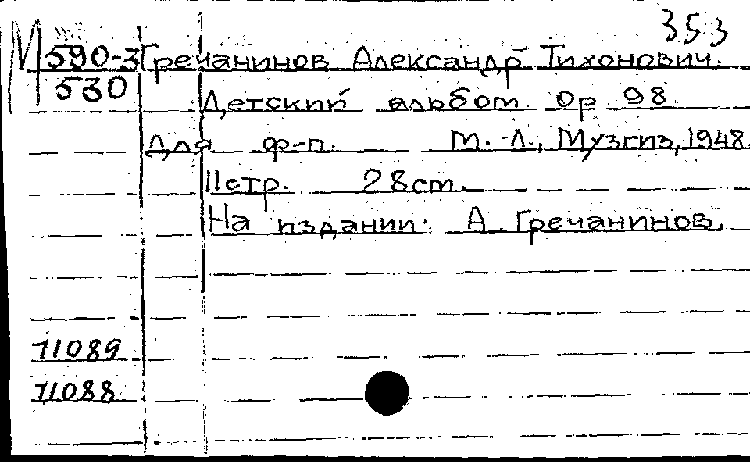 353
М 590-3 Гречанинов Александр Тихонович.
530
Детский альбом Op 98
Для ф-п. М.-Л., Музгиз, 1948
11стр. 28см.
На издании: А Гречанинов.
71089
71088